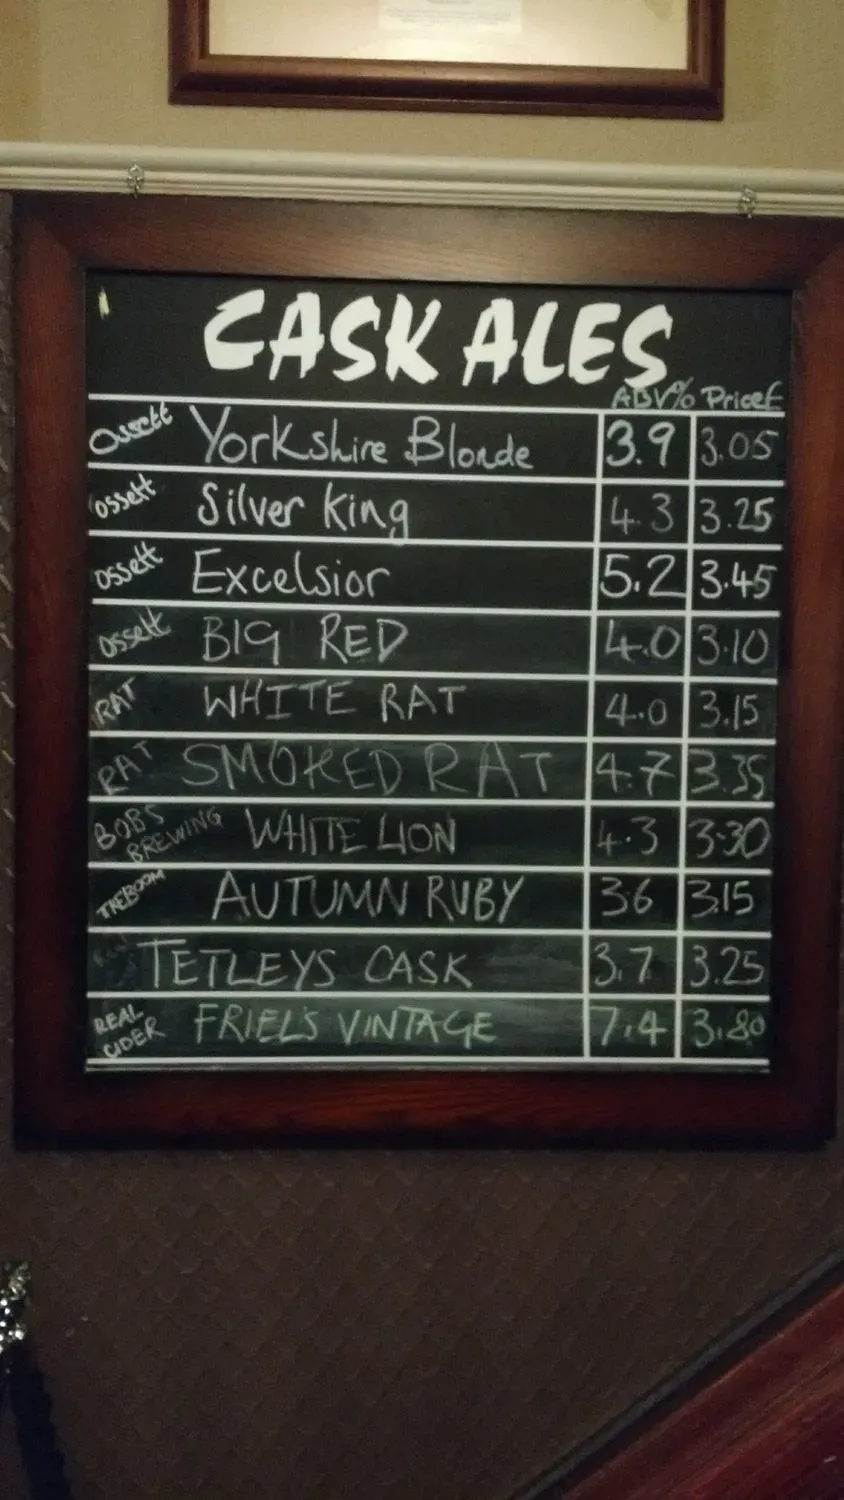 CASK ALES
ABV% Price£
Ossett Yorkshire Blonde 3.9 3.05
Ossett Silver King 4.3 3.25
Ossett Excelsior 5.2 3.45
Ossett BIG RED 4.0 3.10
RAT WHITE RAT 4.0 3.15
RAT SMOKED RAT 4.7 3.35
BOBS BREWING WHITE LION 4.3 3.30
TREBOOM AUTUMN RUBY 3.6 3.15
TETLEYS CASK 3.7 3.25
REAL CIDER FRIEL'S VINTAGE 7.4 3.80